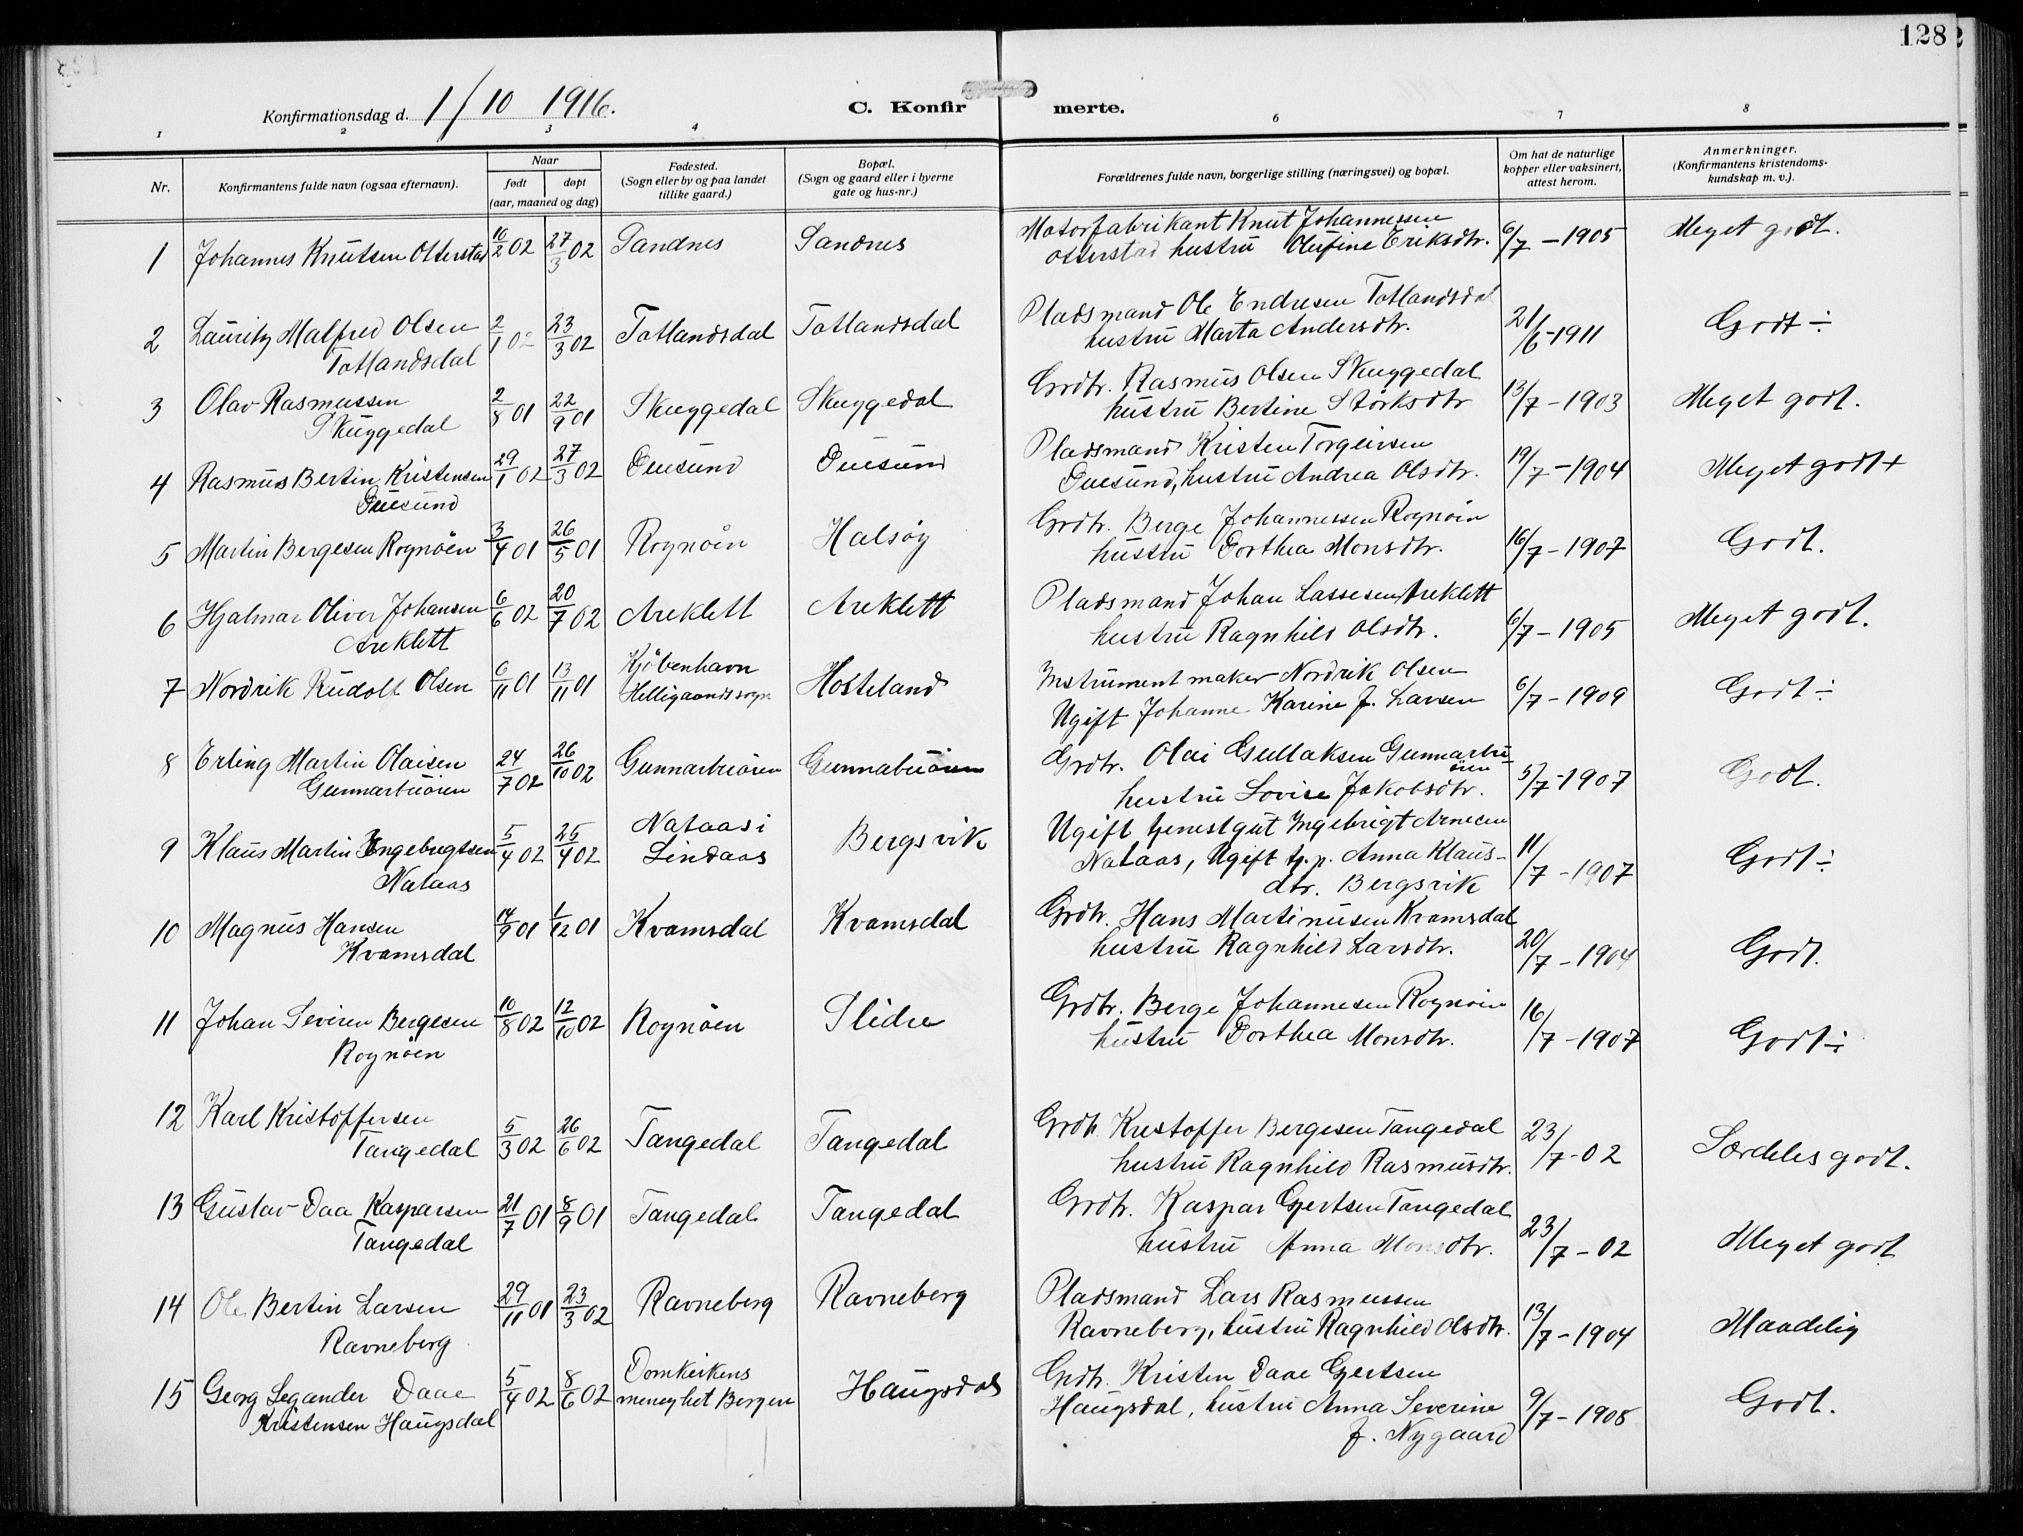 128
Konfirmationsdag d. 1/10 1916.
C. Konfirmerte.
1 2 3 4 6 7 8
Nr.
Konfirmantens fulde navn (ogsaa efternavn).
Naar
født døpt
(aar, maaned og dag)
Fødested.
(Sogn eller by og paa landet
tillike gaard.)
Bopæl.
(Sogn og gaard eller i byerne
gate og hus-nr.)
Forældrenes fulde navn, borgerlige stilling (næringsvei) og bopæl.
Om hat de naturlige
kopper eller vaksinert,
attest herom.
Anmerkninger.
(Konfirmantens kristendoms-
kundskap m. v.).
1 Johannes Knutsen Otterstad 16/2 02 27/3 02 Sandnes Sandnes Motorfabrikant Knut Johannessen
Otterstad hustru Olufine Eriksdtr. 6/7 - 1905 Meget godt.
2 Lauritz Malfred Olsen
Totlandsdal 2/1 02 23/3 02 Totlandsdal Totlandsdal Pladsmand Ole Endresen Totlandsdal
hustru Marta Andersdtr. 21/6 - 1911 Godt ÷
3 Olav Rasmussen
Skuggedal 2/8 01 22/9 01 Skuggedal Skuggedal Grdbr. Rasmus Olsen Skuggedal
hustru Bertine Størksdtr 13/7 - 1903 Meget godt.
4 Rasmus Bertin Kristensen
Duesund 29/1 02 27/3 02 Duesund Duesund Pladsmand Kristen Torgeirsen
Duesund, hustru Andrea Olsdtr. 19/7 - 1904 Meget godt +
5 Martin Bergesen Rognøen 3/4 01 26/5 01 Rognøen Halsøy Grdbr. Berge Johannessen Rognøen
hustru Dorthea Monsdtr. 16/7 - 1907 Godt.
6 Hjalmar Oliver Johansen
Areklett 6/6 02 20/7 02 Areklett Areklett Pladsmand Johan Lassesen Areklett
hustru Ragnhild Olsdtr. 6/7 - 1905 Meget godt.
7 Nordrik Rudolf Olsen 6/11 01 13/11 01 Kjöbenhavn
Helligaandssogn Hosteland Instrumentmaker Nordrik Olsen
Ugift Johanne Karine f. Larsen 6/7 - 1909 Godt ÷
8 Erling Martin Olaisen
Gunnarbuøien 24/7 02 26/10 02 Gunnarbuøien Gunnabuøien Grdtr. Olai Gullaksen Gunnarbu
øien
hustru Lovise Jakobsdtr. 5/7 - 1907 Godt.
9 Klaus Martin Ingebrigtsen
Nataas 5/4 02 25/4 02 Nataas i
Lindaas Bergsvik Ugift tjenestgut Ingebrigt Arnesen
Nataas, Ugift tj. p. Anna Klaus-
dtr. Bergsvik 11/7 - 1907 Godt ÷
10 Magnus Hansen
Kvamsdal 14/9 01 1/12 01 Kvamsdal Kvamsdal Grdtr. Hans Martinusen Kvamsdal
hustru Ragnhild Larsdtr. 20/7 - 1904 Godt.
11 Johan Seviren Bergesen
Rognøen 10/8 02 12/10 02 Rognøen Slidre Grdbr. Berge Johannesen Rognøien
hustru Dorthea Monsdtr. 16/7 - 1907 Godt ÷
12 Karl Kristoffersen
Tangedal 5/3 02 26/6 02 Tangedal Tangedal Grdtr. Kristoffer Bergesen Tangedal
hustru Ragnhild Rasmusdtr. 23/7 - 02 Særdeles godt.
13 Gustav Daa Kasparsen
Tangedal 21/7 01 8/9 01 Tangedal Tangedal Grdtr. Kaspar Gjertsen Tangedal
hustru Anna Monsdtr. 23/7 - 02 Meget godt
14 Ole Bertin Larsen
Ravneberg 29/11 01 23/3 02 Ravneberg Ravneberg Pladsmand Lars Rasmussen
Ravneberg, hustru Ragnhild Olsdtr. 13/7 - 1904 Maadelig
15 Georg Legander Daae
Kristensen Haugsdal 5/4 02 8/6 02 Domkirkens
menighet Bergen Haugsdal Grdtr. Kristen Daae Gjertsen
Haugsdal, hustru Anna Severine
f. Nygaard 9/7 - 1908 Godt.